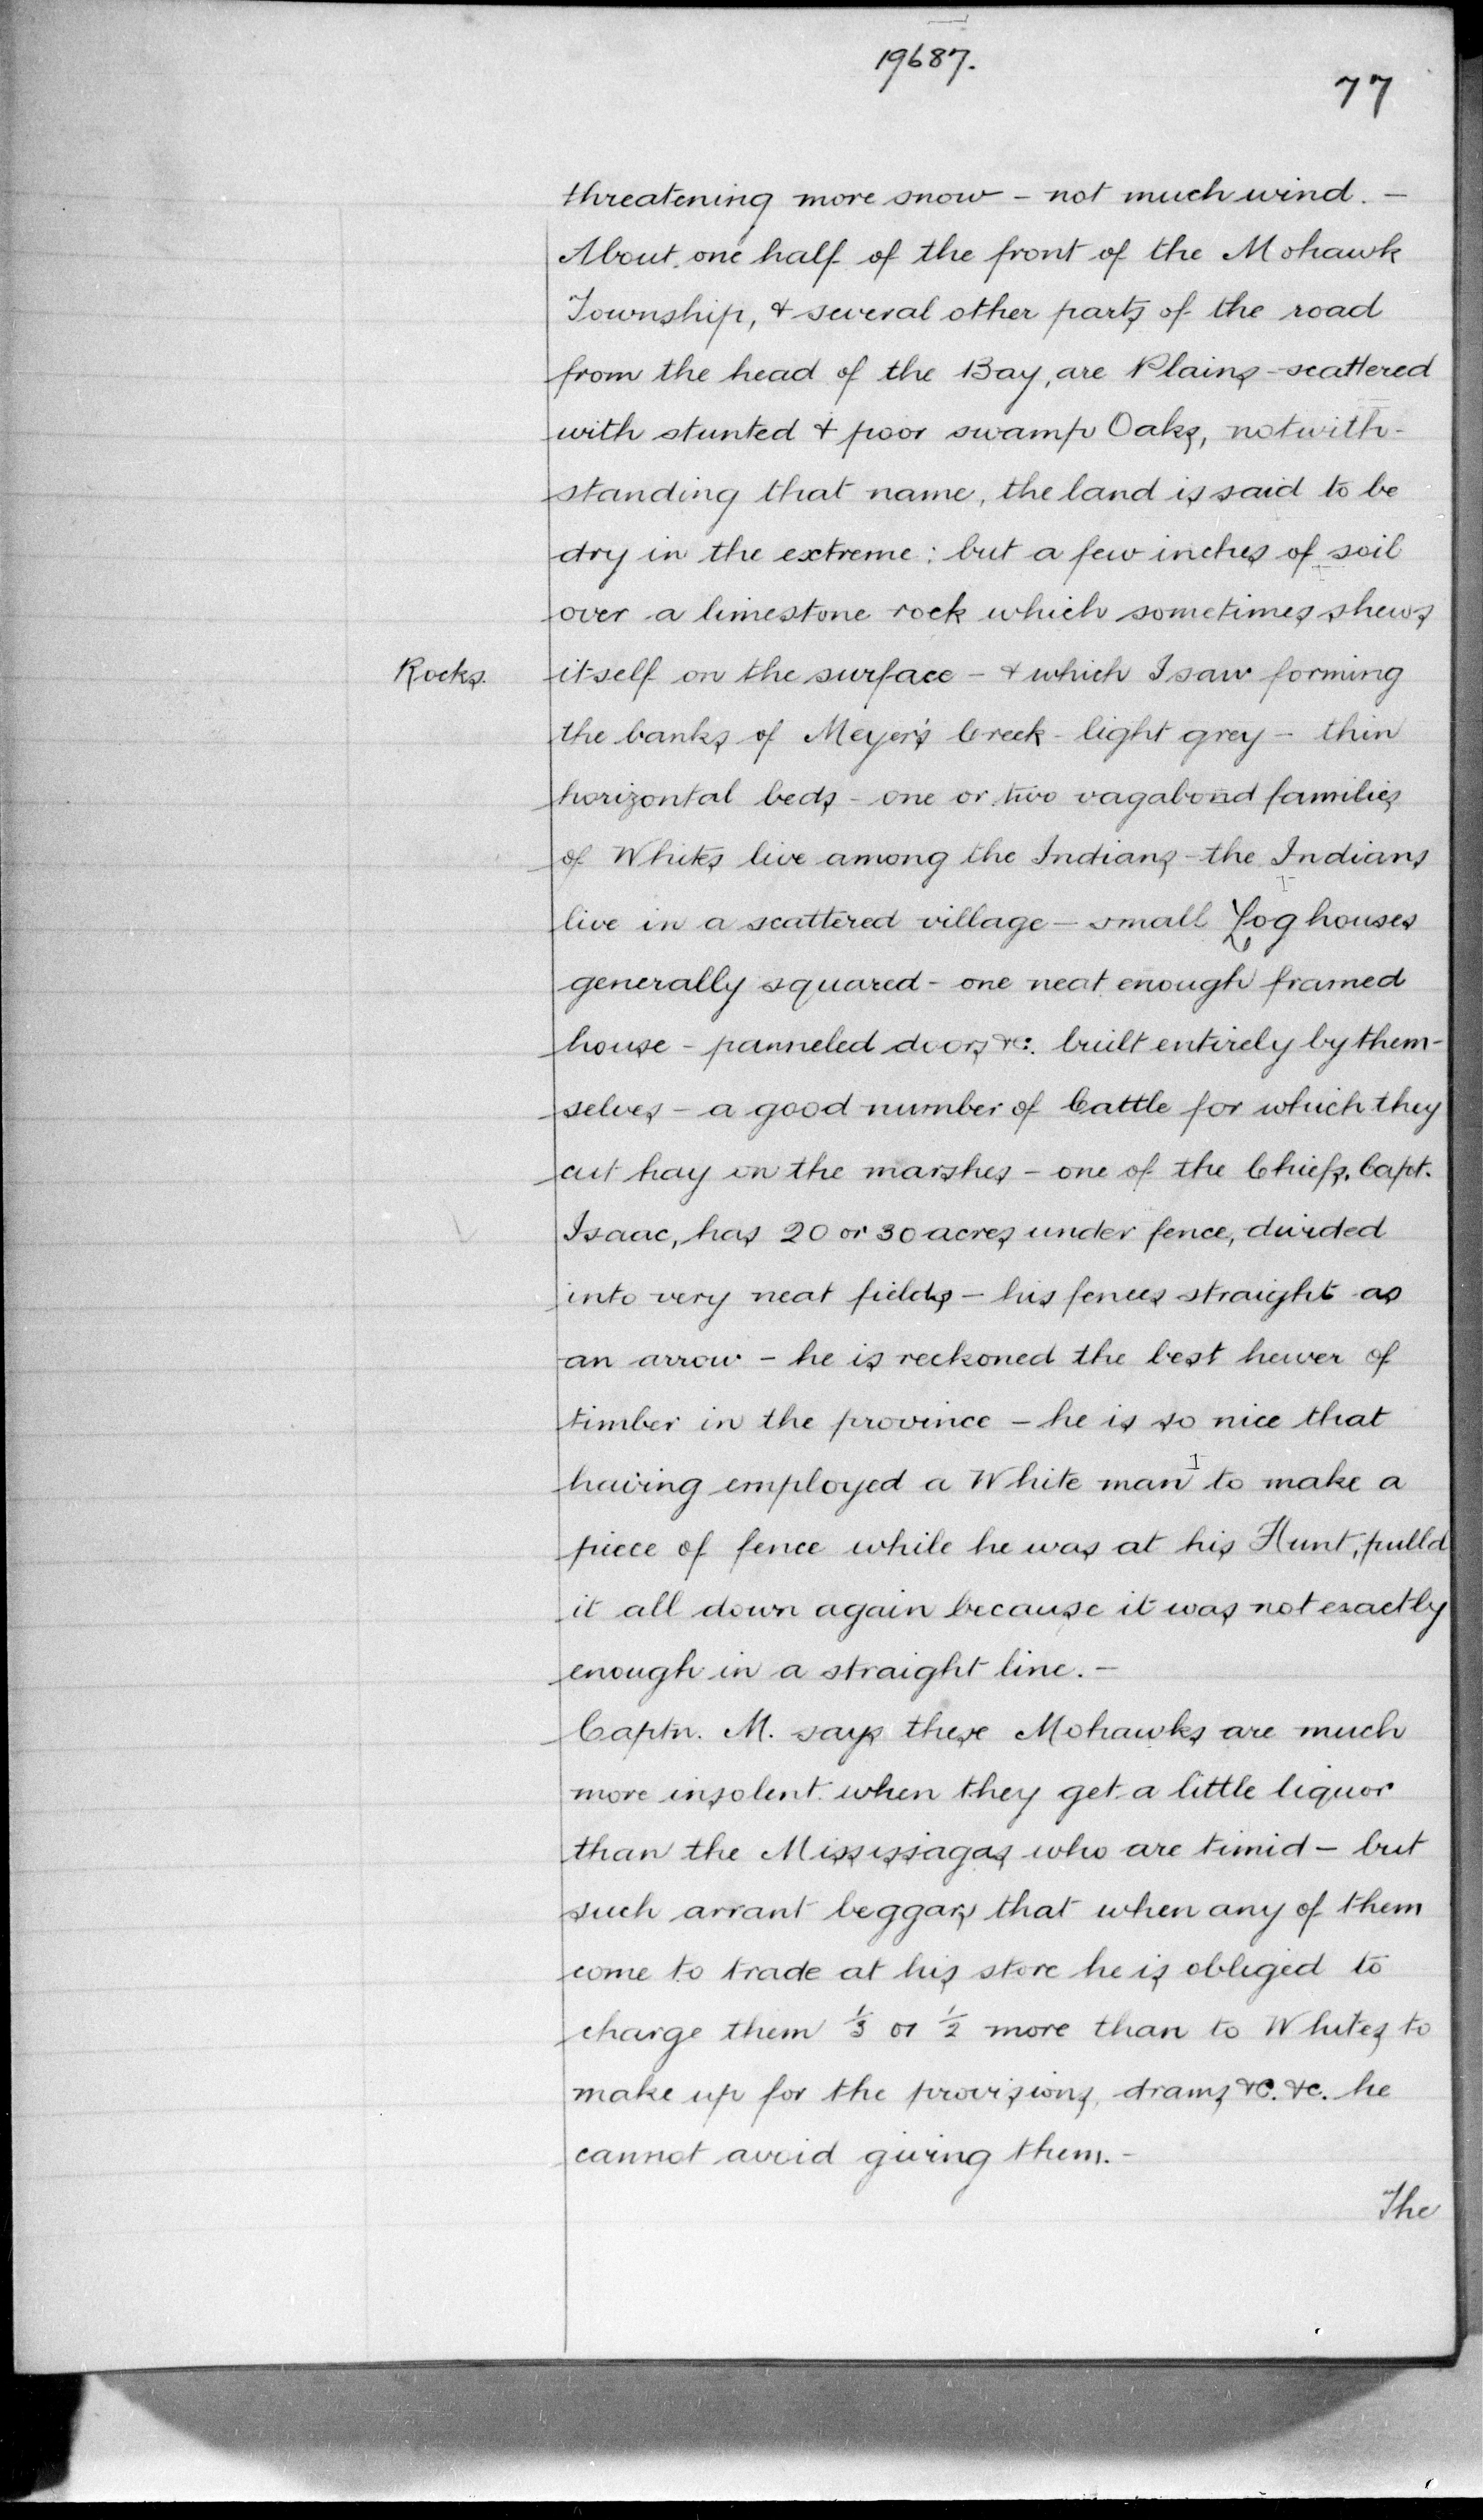 19687.
77
threatening more snow - not much wind. -
About one half of the front of the Mohawk
Township, & several other parts of the road
from the head of the Bay, are Plains - scattered
with stunted & poor swamp Oaks, notwith-
standing that name, the land is said to be
dry in the extreme: but a few inches of soil
over a limestone rock which sometimes shews
Rocks. itself on the surface - & which I saw forming
the banks of Meyer's Creek - light grey - thin
horizontal beds - one or two vagabond families
of Whites live among the Indians - the Indians
live in a scattered village - small Log houses
generally squared - one neat enough framed
house - panneled doors &c. built entirely by them-
selves - a good number of Cattle for which they
cut hay on the marshes - one of the Chiefs, Capt.
Isaac, has 20 or 30 acres under fence, divided
into very neat fields - his fences straight as
an arrow - he is reckoned the best hewer of
timber in the province - he is so nice that
having employed a White man to make a
piece of fence while he was at his Hunt, pulld
it all down again because it was not exactly
enough in a straight line. -
Captn. M. says these Mohawks are much
more insolent when they get a little liquor
than the Missisagas who are timid - but
such arrant beggars that when any of them
come to trade at his store he is obliged to
charge them 1/3 or 1/2 more than to Whites to
make up for the provisions, drams &c. &c. he
cannot avoid giving them. -
The